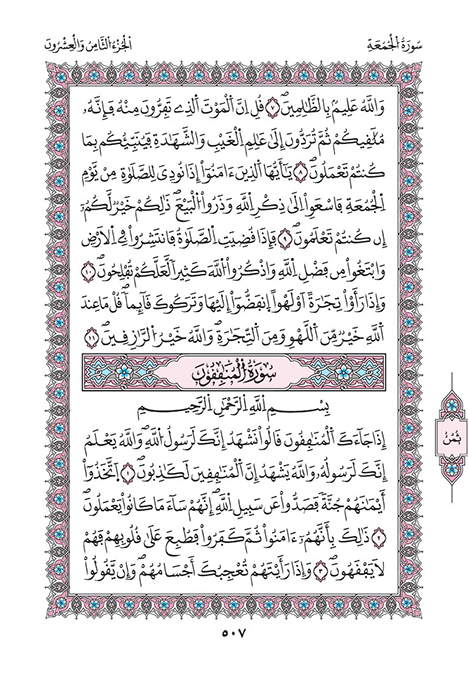 سُورَةُ الْجُمُعَةِ
الْجُزْءُ الثَّامِنُ وَالْعِشْرُونَ
وَاللَّهُ عَلِيمُۢ بِالظَّٰلِمِينَ ٧ قُلْ إِنَّ الْمَوْتَ الَّذِي تَفِرُّونَ مِنْهُ فَإِنَّهُۥ
مُلَٰقِيكُمْ ثُمَّ تُرَدُّونَ إِلَىٰ عَٰلِمِ الْغَيْبِ وَالشَّهَٰدَةِ فَيُنَبِّئُكُم بِمَا
كُنتُمْ تَعْمَلُونَ ٨ يَٰٓأَيُّهَا الَّذِينَ ءَامَنُوٓا۟ إِذَا نُودِيَ لِلصَّلَوٰةِ مِنْ يَّوْمِ
الْجُمُعَةِ فَاسْعَوْا۟ اِلَىٰ ذِكْرِ اللَّهِ وَذَرُوا۟ الْبَيْعَ ذَٰلِكُمْ خَيْرٌ لَّكُمُۥٓ
إِن كُنتُمْ تَعْلَمُونَ ٩ فَإِذَا قُضِيَتِ الصَّلَوٰةُ فَانتَشِرُوا۟ فِي اِلَارْضِ
وَابْتَغُوا۟ مِن فَضْلِ اللَّهِ وَاذْكُرُوا۟ اللَّهَ كَثِيرًا لَّعَلَّكُمْ تُفْلِحُونَ ١٠
وَإِذَا رَأَوْا۟ تِجَٰرَةً اَوْ لَهْوًا اِنفَضُّوٓا۟ إِلَيْهَا وَتَرَكُوكَ قَآئِمًا قُلْ مَا عِندَ
اللَّهِ خَيْرٌ مِّنَ اللَّهْوِ وَمِنَ التِّجَٰرَةِ وَاللَّهُ خَيْرُ الرَّٰزِقِينَ ١١
سُورَةُ الْمُنَٰفِقُونَ
بِسْمِ اللَّهِ الرَّحْمَٰنِ الرَّحِيمِ
إِذَا جَآءَكَ الْمُنَٰفِقُونَ قَالُوا۟ نَشْهَدُ إِنَّكَ لَرَسُولُ اللَّهِ وَاللَّهُ يَعْلَمُ
إِنَّكَ لَرَسُولُهُۥ وَاللَّهُ يَشْهَدُ إِنَّ الْمُنَٰفِقِينَ لَكَٰذِبُونَ ١ اَتَّخَذُوٓا۟
أَيْمَٰنَهُمْ جُنَّةً فَصَدُّوا۟ عَن سَبِيلِ اللَّهِ إِنَّهُمْ سَآءَ مَا كَانُوا۟ يَعْمَلُونَ
٢ ذَٰلِكَ بِأَنَّهُمُۥٓ ءَامَنُوا۟ ثُمَّ كَفَرُوا۟ فَطُبِعَ عَلَىٰ قُلُوبِهِمْ فَهُمْ
لَا يَفْقَهُونَ ٣ وَإِذَا رَأَيْتَهُمْ تُعْجِبُكَ أَجْسَامُهُمْ وَإِنْ يَّقُولُوا۟
ثُمُنٌ
٥٠٧